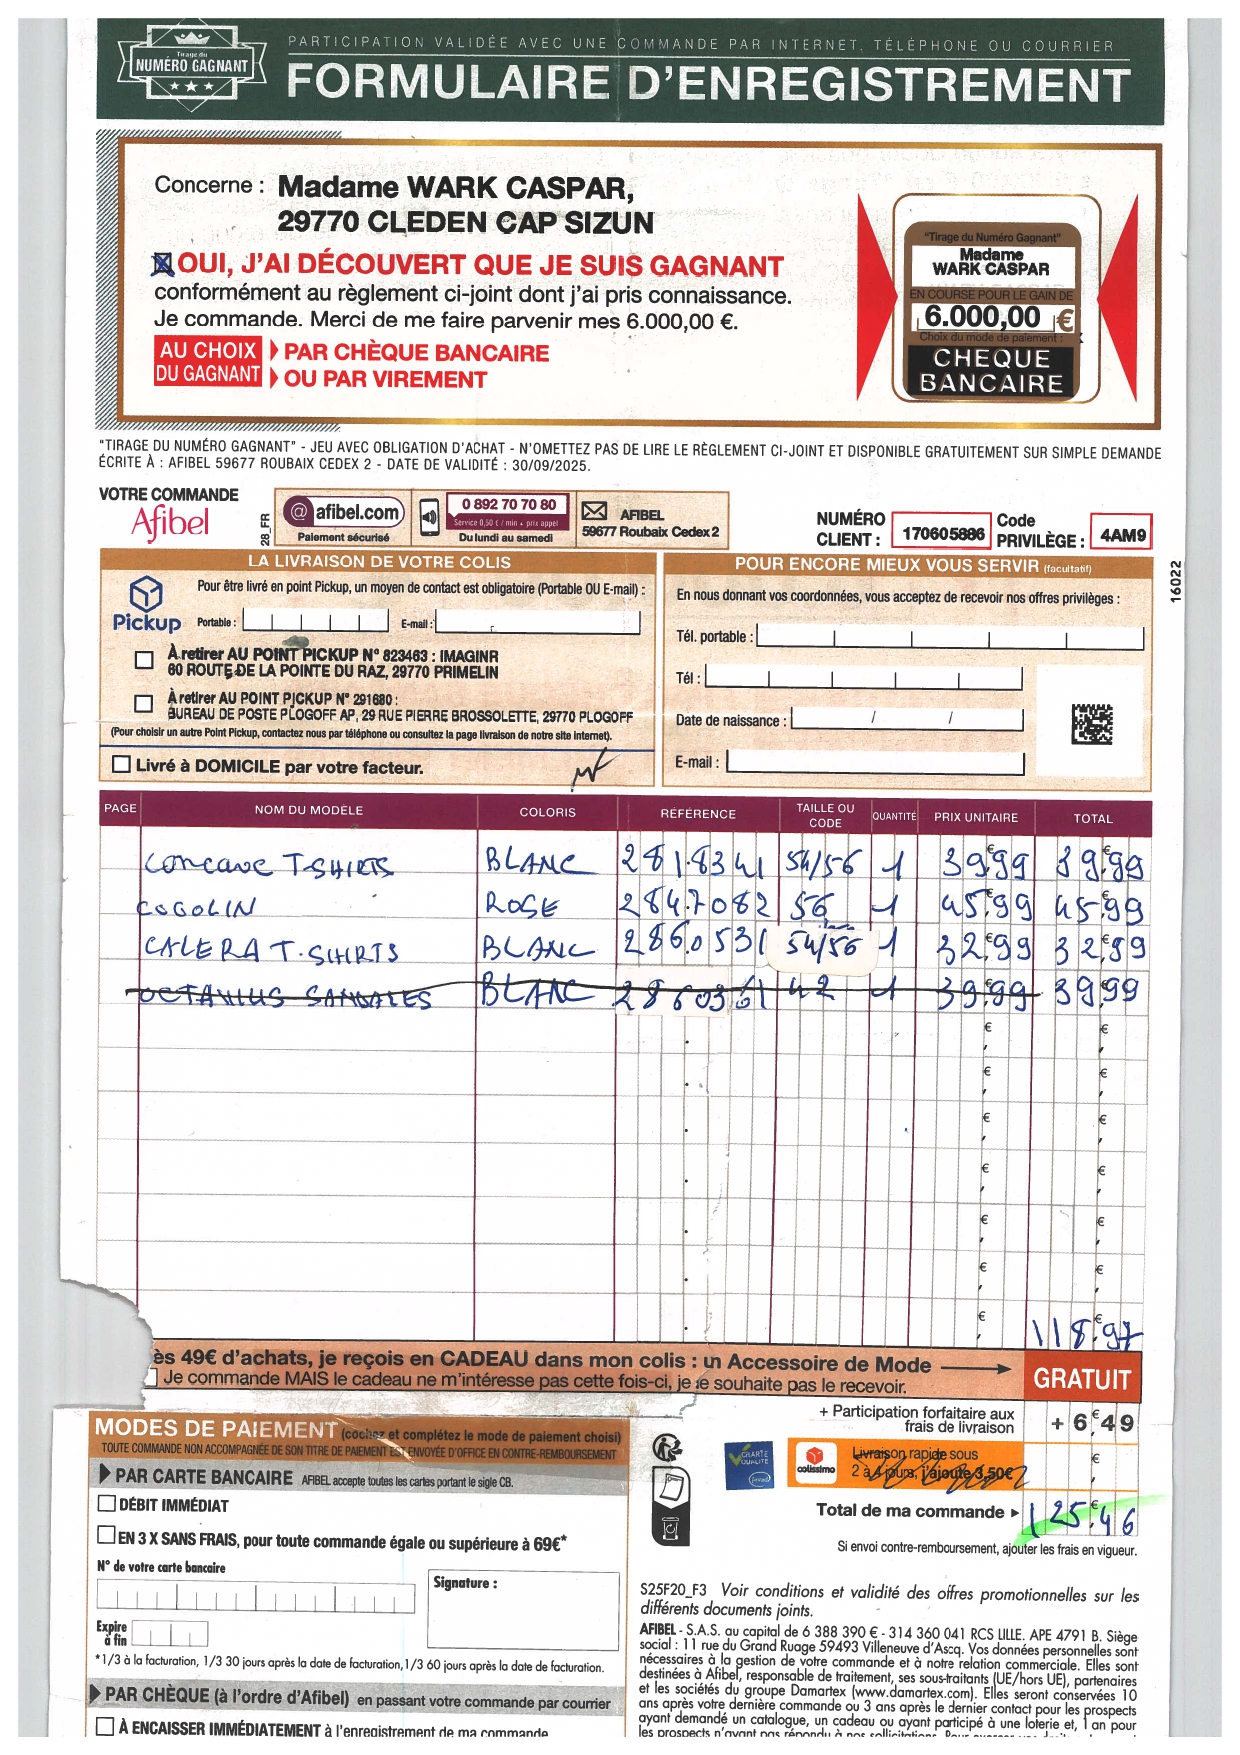 Tirage du
NUMÉRO GAGNANT
PARTICIPATION VALIDÉE AVEC UNE COMMANDE PAR INTERNET, TÉLÉPHONE OU COURRIER
FORMULAIRE D'ENREGISTREMENT
Concerne : Madame WARK CASPAR,
29770 CLEDEN CAP SIZUN
OUI, J'AI DÉCOUVERT QUE JE SUIS GAGNANT
conformément au règlement ci-joint dont j'ai pris connaissance.
Je commande. Merci de me faire parvenir mes 6.000,00 €.
AU CHOIX
DU GAGNANT
PAR CHÈQUE BANCAIRE
OU PAR VIREMENT
"Tirage du Numéro Gagnant"
Madame
WARK CASPAR
EN COURSE POUR LE GAIN DE
6.000,00 €
Choix du mode de paiement :
CHEQUE
BANCAIRE
"TIRAGE DU NUMÉRO GAGNANT" - JEU AVEC OBLIGATION D'ACHAT - N'OMETTEZ PAS DE LIRE LE RÈGLEMENT CI-JOINT ET DISPONIBLE GRATUITEMENT SUR SIMPLE DEMANDE
ÉCRITE À : AFIBEL 59677 ROUBAIX CEDEX 2 - DATE DE VALIDITÉ : 30/09/2025.
VOTRE COMMANDE
Afibel
28_FR
@ afibel.com
Paiement sécurisé
0 892 70 70 80
Service 0,50 € / min + prix appel
Du lundi au samedi
AFIBEL
59677 Roubaix Cedex 2
NUMÉRO
CLIENT : 170605886
Code
PRIVILÈGE : 4AM9
16022
LA LIVRAISON DE VOTRE COLIS
Pickup
Pour être livré en point Pickup, un moyen de contact est obligatoire (Portable OU E-mail) :
Portable : E-mail :
À retirer AU POINT PICKUP N° 823463 : IMAGINR
60 ROUTE DE LA POINTE DU RAZ, 29770 PRIMELIN
À retirer AU POINT PICKUP N° 291680 :
BUREAU DE POSTE PLOGOFF AP, 29 RUE PIERRE BROSSOLETTE, 29770 PLOGOFF
(Pour choisir un autre Point Pickup, contactez nous par téléphone ou consultez la page livraison de notre site internet).
Livré à DOMICILE par votre facteur.
POUR ENCORE MIEUX VOUS SERVIR (facultatif)
En nous donnant vos coordonnées, vous acceptez de recevoir nos offres privilèges :
Tél. portable :
Tél :
Date de naissance : / /
E-mail :
PAGE NOM DU MODÈLE COLORIS RÉFÉRENCE TAILLE OU CODE QUANTITÉ PRIX UNITAIRE TOTAL
CONCAVE T-SHIRTS BLANC 281.8341 54/56 1 39,99 39,99
COGOLIN ROSE 284.7082 56 1 45,99 45,99
CALERA T-SHIRTS BLANC 286.0531 54/56 1 32,99 32,99
OCTAVIUS SANDALES BLANC 2860361 42 1 39,99 39,99
118,97
ès 49€ d'achats, je reçois en CADEAU dans mon colis : un Accessoire de Mode
Je commande MAIS le cadeau ne m'intéresse pas cette fois-ci, je ne souhaite pas le recevoir.
GRATUIT
+ Participation forfaitaire aux
frais de livraison
+ 6,€49
CHARTE
QUALITÉ
colissimo
Livraison rapide sous
2 à 4 jours, j'ajoute 3,50€
Total de ma commande 125,€46
Si envoi contre-remboursement, ajouter les frais en vigueur.
MODES DE PAIEMENT (cochez et complétez le mode de paiement choisi)
TOUTE COMMANDE NON ACCOMPAGNÉE DE SON TITRE DE PAIEMENT EST ENVOYÉE D'OFFICE EN CONTRE-REMBOURSEMENT
PAR CARTE BANCAIRE AFIBEL accepte toutes les cartes portant le sigle CB.
DÉBIT IMMÉDIAT
EN 3 X SANS FRAIS, pour toute commande égale ou supérieure à 69€*
N° de votre carte bancaire
Signature :
Expire
à fin
*1/3 à la facturation, 1/3 30 jours après la date de facturation,1/3 60 jours après la date de facturation.
PAR CHÈQUE (à l'ordre d'Afibel) en passant votre commande par courrier
À ENCAISSER IMMÉDIATEMENT à l'enregistrement de ma commande
S25F20_F3 Voir conditions et validité des offres promotionnelles sur les
différents documents joints.
AFIBEL - S.A.S. au capital de 6 388 390 € - 314 360 041 RCS LILLE. APE 4791 B. Siège
social : 11 rue du Grand Ruage 59493 Villeneuve d'Ascq. Vos données personnelles sont
nécessaires à la gestion de votre commande et à notre relation commerciale. Elles sont
destinées à Afibel, responsable de traitement, ses sous-traitants (UE/hors UE), partenaires
et les sociétés du groupe Damartex (www.damartex.com). Elles seront conservées 10
ans après votre dernière commande ou 3 ans après le dernier contact pour les prospects
ayant demandé un catalogue, un cadeau ou ayant participé à une loterie et, 1 an pour
les prospects n'ayant pas répondu à nos sollicitations.